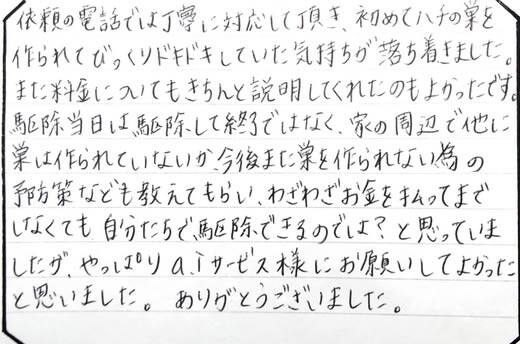 依頼の電話では丁寧に対応して頂き、初めてハチの巣を
作られてびっくりドキドキしていた気持ちが落ち着きました。
また料金についてもきちんと説明してくれたのもよかったです。
駆除当日は、駆除して終ではなく、家の周辺で他に
巣は作られていないか、今後また巣を作られない為の
予防策なども教えてもらい、わざわざお金を払ってまで
しなくても自分たちで、駆除できるのでは？と思っていま
したが、やっぱりa.iサービス様にお願いしてよかった
と思いました。 ありがとうございました。